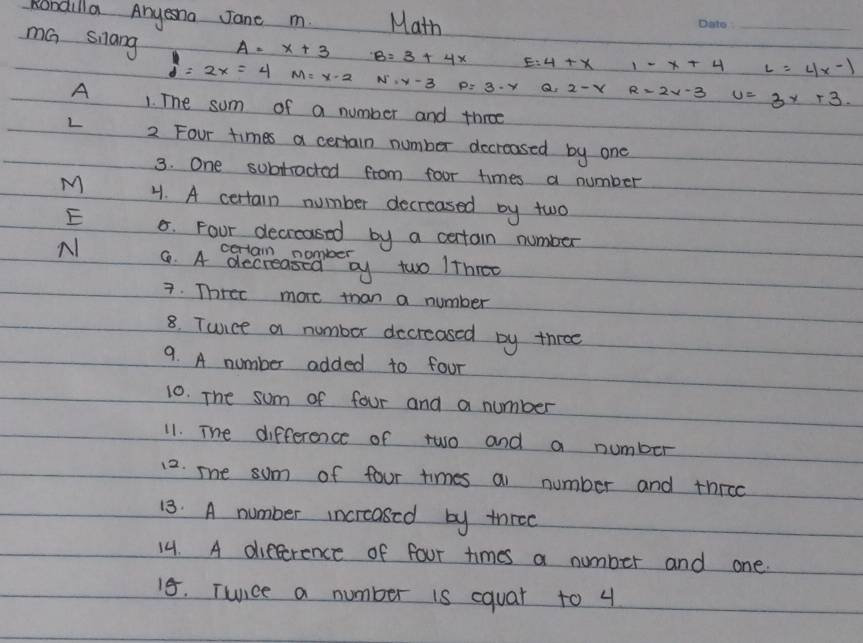 Rondilla Anyesna Jane M. Math Date:
MG Silang A = x + 3 B = 3 + 4x E = 4 + x 1 - x + 4 L = 4x - 1
= 2x = 4 M = x - 2 N = x - 3 P = 3 - x Q = 2 - x R = 2x - 3 U = 3x + 3.
A 1. The sum of a number and three
L 2 Four times a certain number decreased by one
3. One subtracted from four times a number
M 4. A certain number decreased by two
E 5. Four decreased by a certain number
N 6. A certain number decreased by two | Three
7. Three more than a number
8. Twice a number decreased by three
9. A number added to four
10. The sum of four and a number
11. The difference of two and a number
12. The sum of four times a number and three
13. A number increased by three
14. A difference of four times a number and one.
15. Twice a number is equal to 4